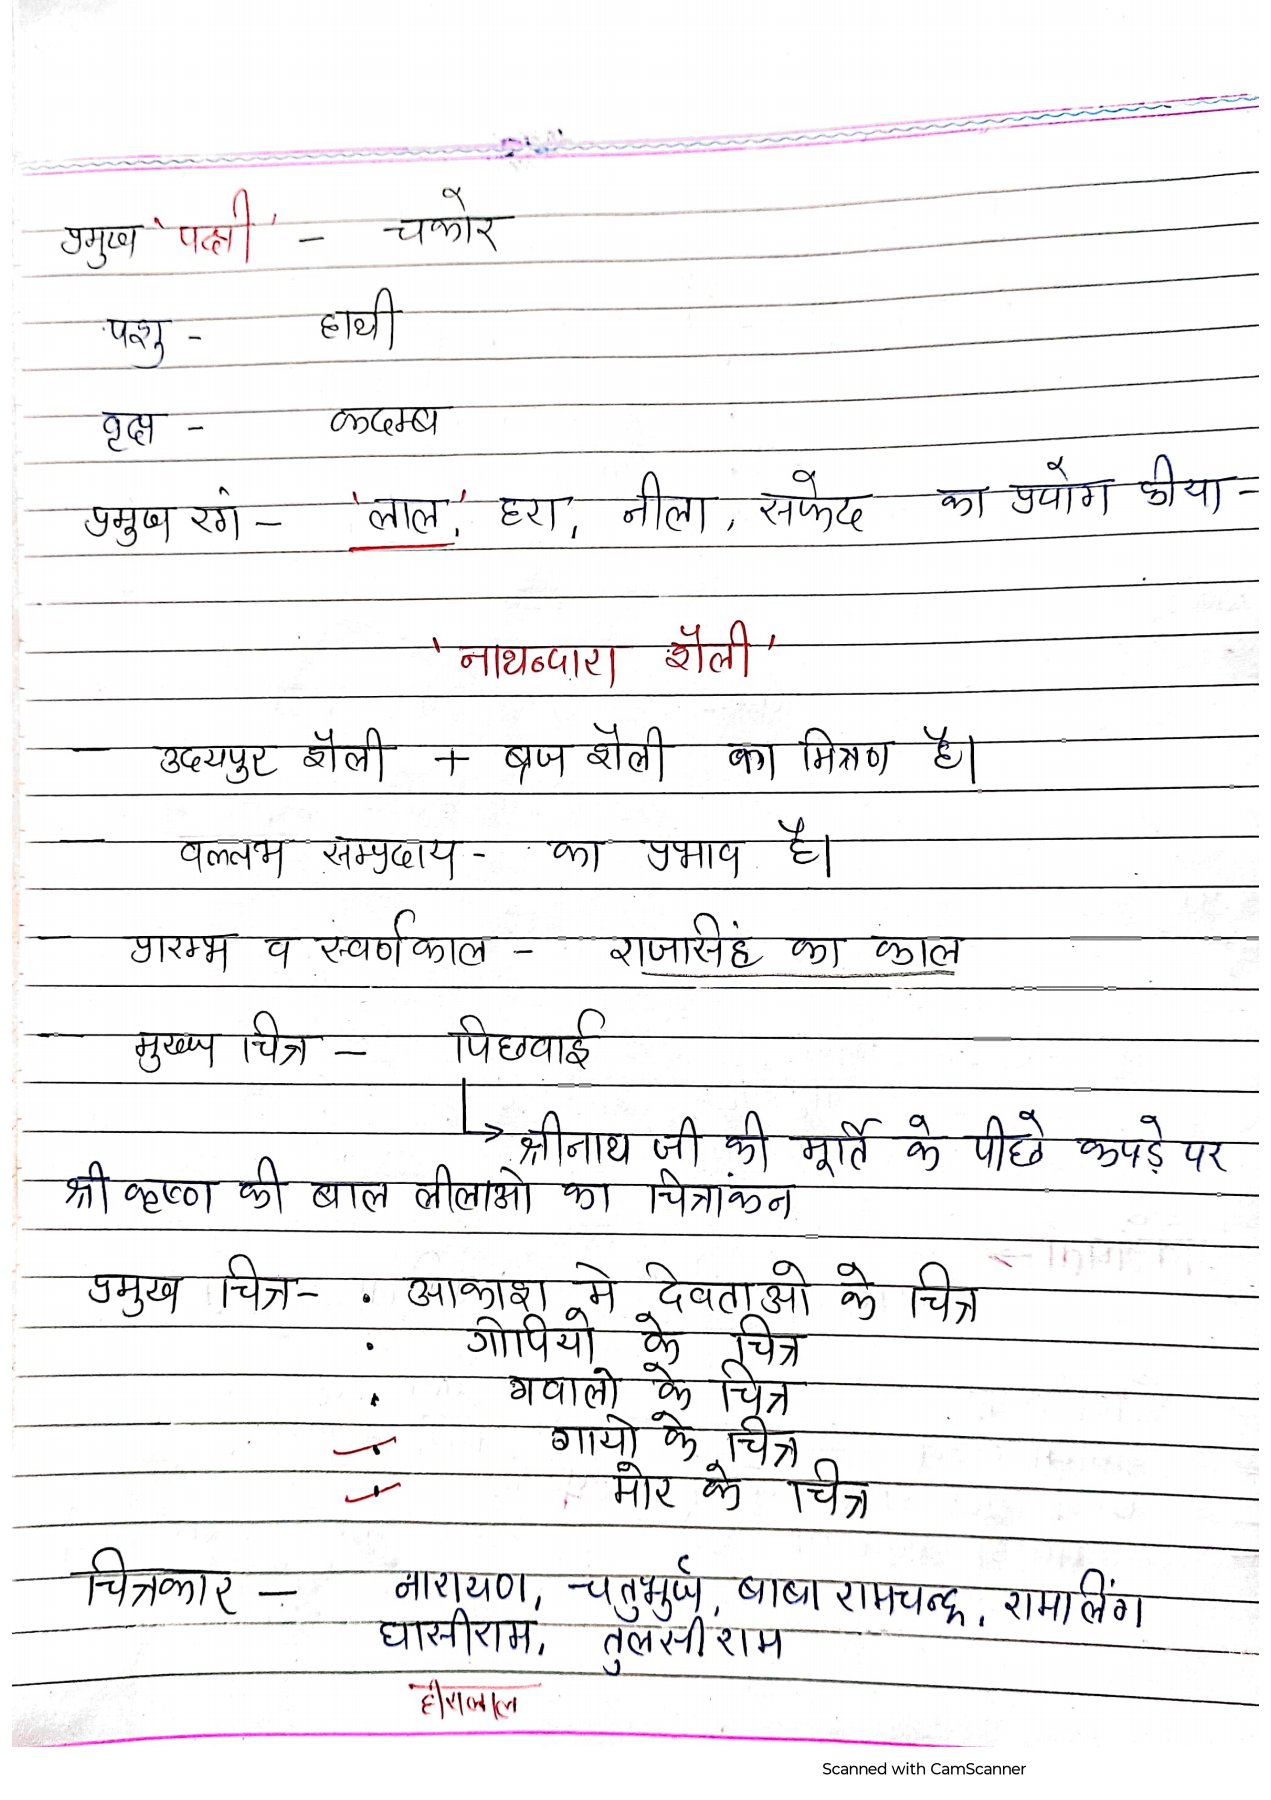 प्रमुख 'पक्षी' - चकोर
पशु - हाथी
वृक्ष - कदम्ब
प्रमुख रंग - 'लाल', हरा, नीला, सफेद का प्रयोग कीया -
'नाथद्वारा शैली'
- उदयपुर शैली + ब्रज शैली का मिश्रण है।
- वल्लभ सम्प्रदाय - का प्रभाव है।
- प्रारम्भ व स्वर्णकाल - राजसिंह का काल
- मुख्य चित्र - पिछवाई
→ श्रीनाथ जी की मूर्ति के पीछे कपड़े पर
श्री कृष्ण की बाल लीलाओ का चित्रांकन
प्रमुख चित्र - • आकाश मे देवताओ के चित्र
• गोपियो के चित्र
• गवालो के चित्र
• गायो के चित्र
• मोर के चित्र
चित्रकार - नारायण, चतुर्भुज, बाबा रामचन्द्र, रामलिंग
घासीराम, तुलसीराम
हीरालाल
Scanned with CamScanner